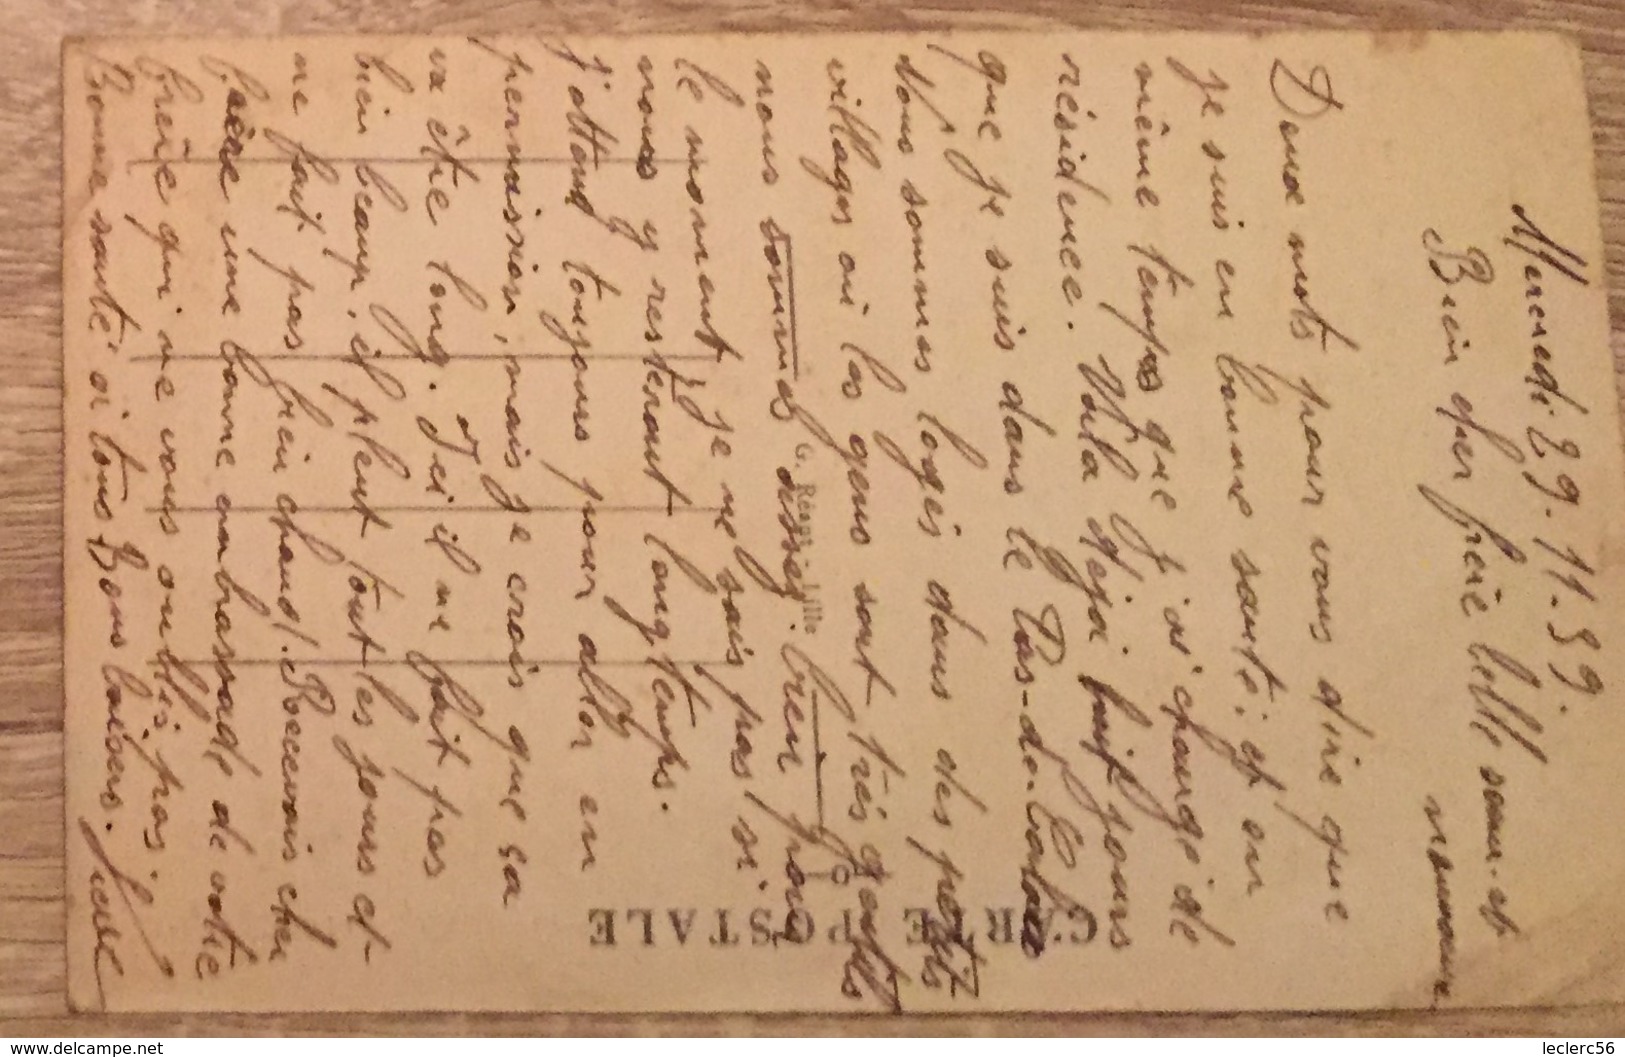 Mercredi 29.11.39.
Bien cher frère belle sœur et
Deux mots pour vous dire que
je suis en bonne santé; et en
même temps que j'ai changé de
résidence. Voila déjà huit jours
que je suis dans le Pas-de-Calais
Nous sommes logés dans des petits
villages où les gens sont très gentils
nous sommes assez bien pour
le moment, je ne sais pas si
nous y resteront longtemps.
J'attend toujours pour aller en
permission, mais je crois que sa
va être long. Ici il ne fait pas
bien beau, il pleut tout les jours et
ne fait pas bien chaud. Reccevois cher
frère une bonne embrassade de votre
frère qui ne vous oublis pas
Bonne santé a tous, Bons baisers.
CARTE POSTALE
Lille
www.delcampe.net
leclerc56